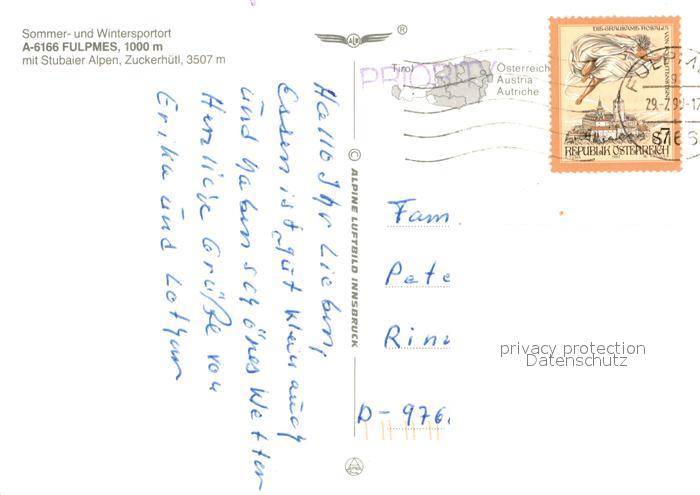 Sommer- und Wintersportort
A-6166 FULPMES, 1000 m
mit Stubaier Alpen, Zuckerhütl, 3507 m
ALW
®
Hallo Ihr Lieben,
Essen ist gut klein auch
und haben schönes Wetter
Herzliche Grüße von
Erika und Lothar
© ALPINE LUFTBILD INNSBRUCK
PRIORITY
Tirol
Österreich
Austria
Autriche
DIE GRAUSAME ROSALIA VON
S7
REPUBLIK ÖSTERREICH
FULPM
29.-7.99-17
616
Fam.
Pete
Rin
D-976
privacy protection
Datenschutz